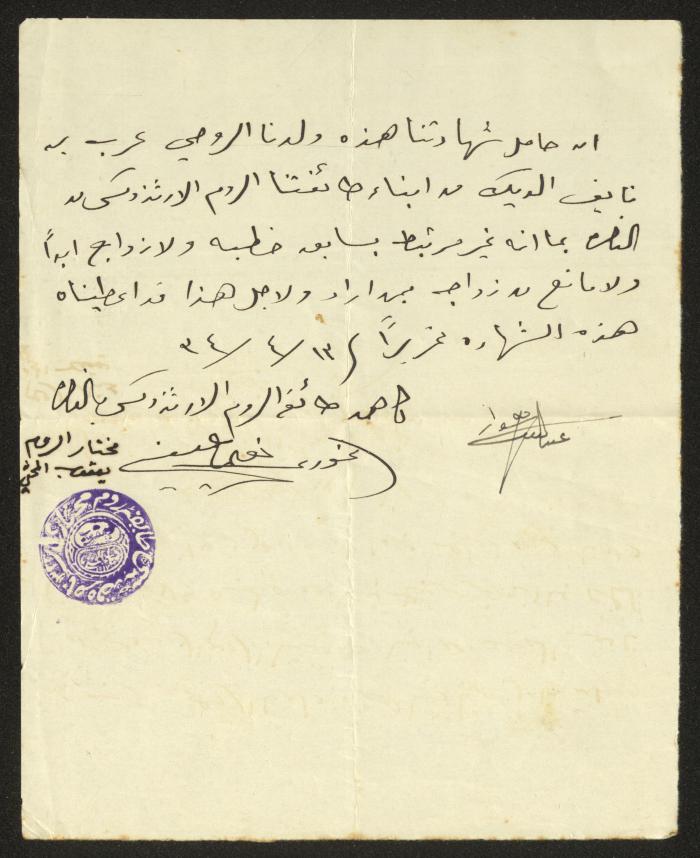 ان حامل شهادتنا هذه ولدنا الروحي عرب بن
نايف الديك من ابناء طائفتنا الروم الارثذوكس من
الناصره بما انه غير مرتبط بسابق خطبه ولا زواج ابداً
ولا مانع من زواجه بمن اراد ولاجل هذا قد اعطيناه
هذه الشهاده تحريراً ١٣/٤/٣٤
كاهن طائفة الروم الارثذوكس بالناصره
الخوري
مختار الروم
يعقوب